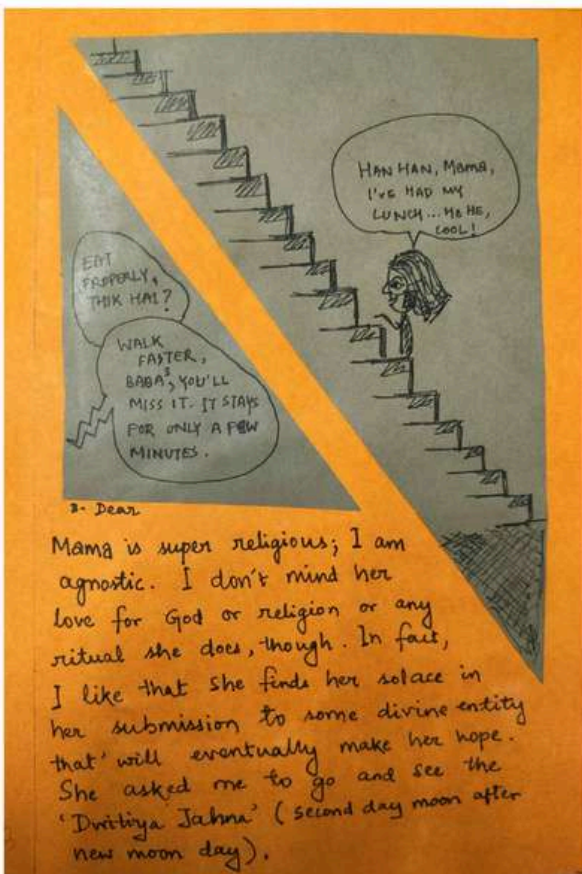 HAN HAN, MAMA,
I'VE HAD MY
LUNCH... HE HE,
COOL!
EAT
PROPERLY,
THIK HAI?
WALK
FASTER,
BABA³, YOU'LL
MISS IT. IT STAYS
FOR ONLY A FEW
MINUTES.
3- Dear
Mama is super religious; I am
agnostic. I don't mind her
love for God or religion or any
ritual she does, though. In fact,
I like that she finds her solace in
her submission to some divine entity
that will eventually make her hope.
She asked me to go and see the
'Dwitiya Jahna' (second day moon after
new moon day).